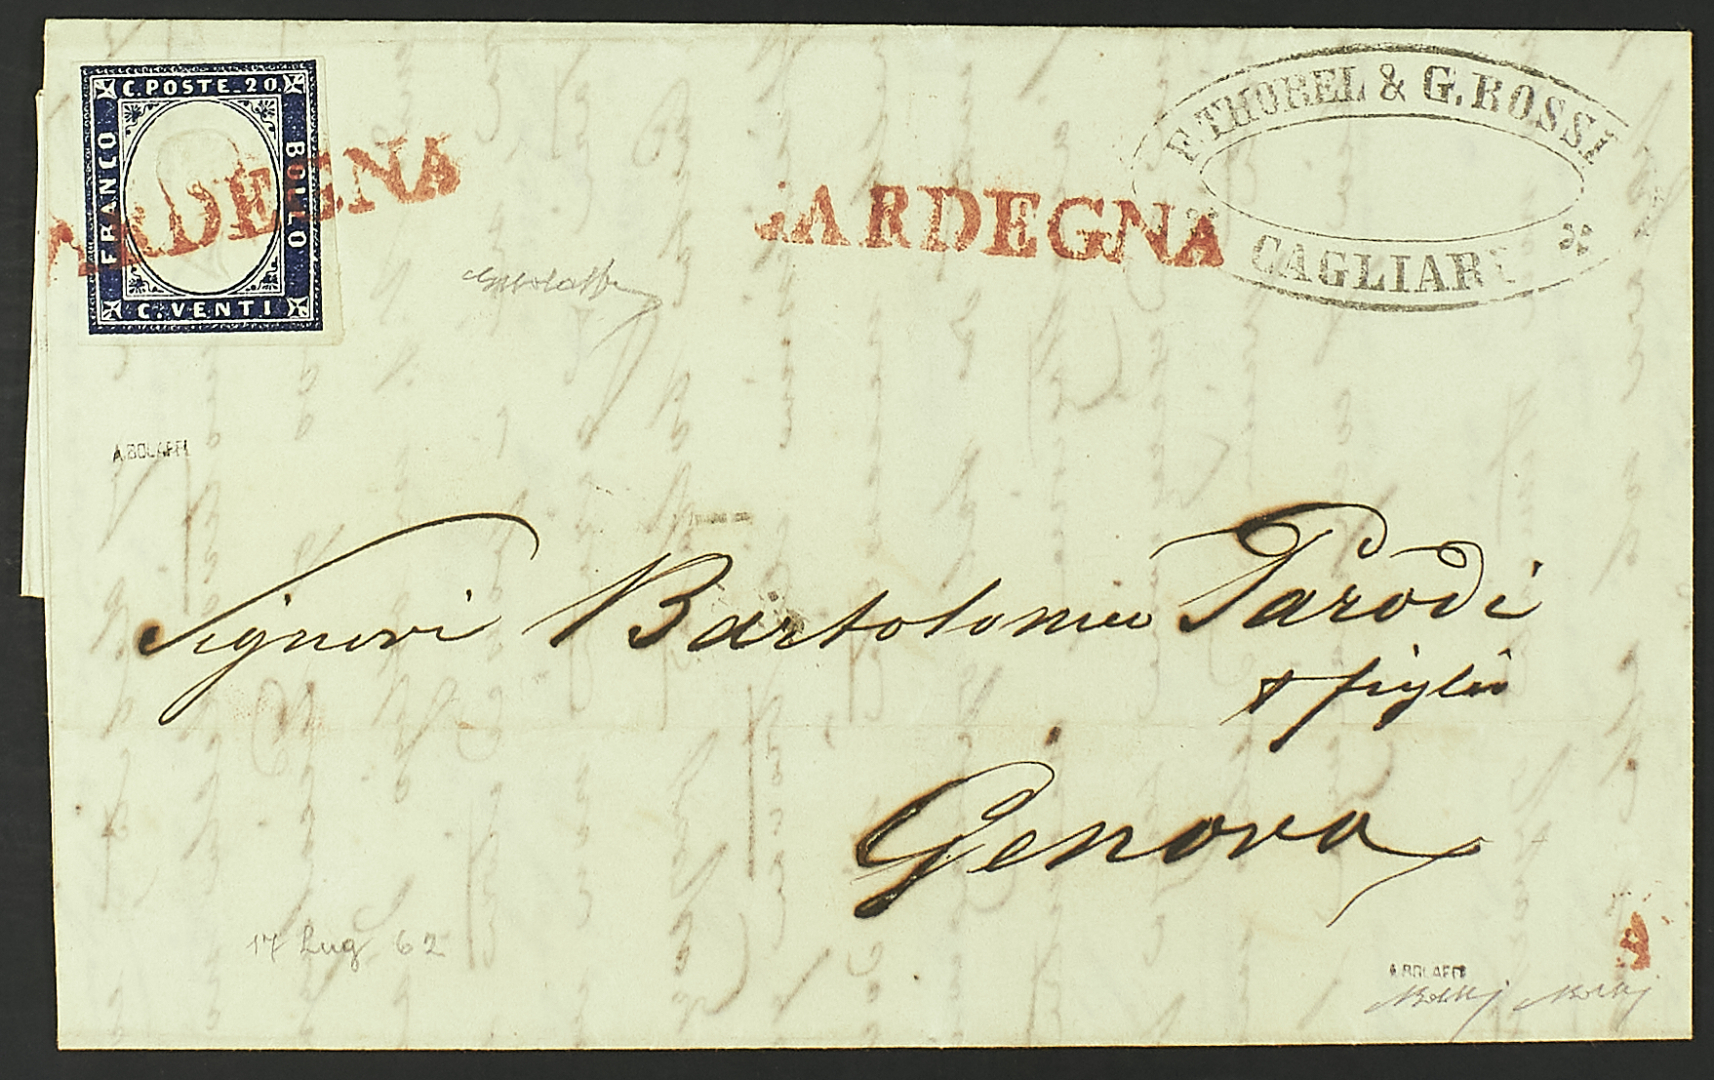 C. POSTE. 20.
FRANCO
BOLLO
C. VENTI
ARDEGNA
SARDEGNA
F. THOREL & G. ROSSI
CAGLIARI
A. BOLAFFI
Signori Bartolomeo Parodi
& figlio
Genova
17 Lug 62
A. BOLAFFI